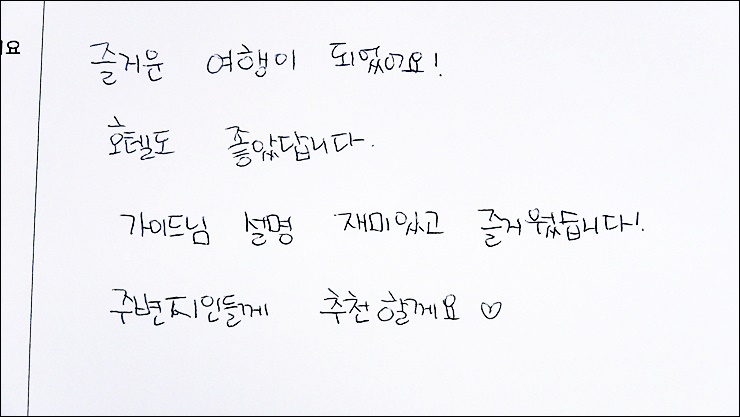 요
즐거운 여행이 되었어요!
호텔도 좋았답니다.
가이드님 설명 재미있고 즐거웠습니다!
주변지인들께 추천할께요 ♡